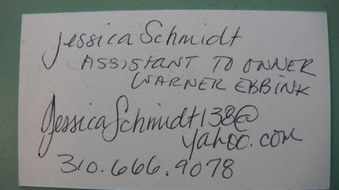 Jessica Schmidt
ASSISTANT TO OWNER
WARNER EBBINK
JessicaSchmidt138@
yahoo.com
310.666.9078